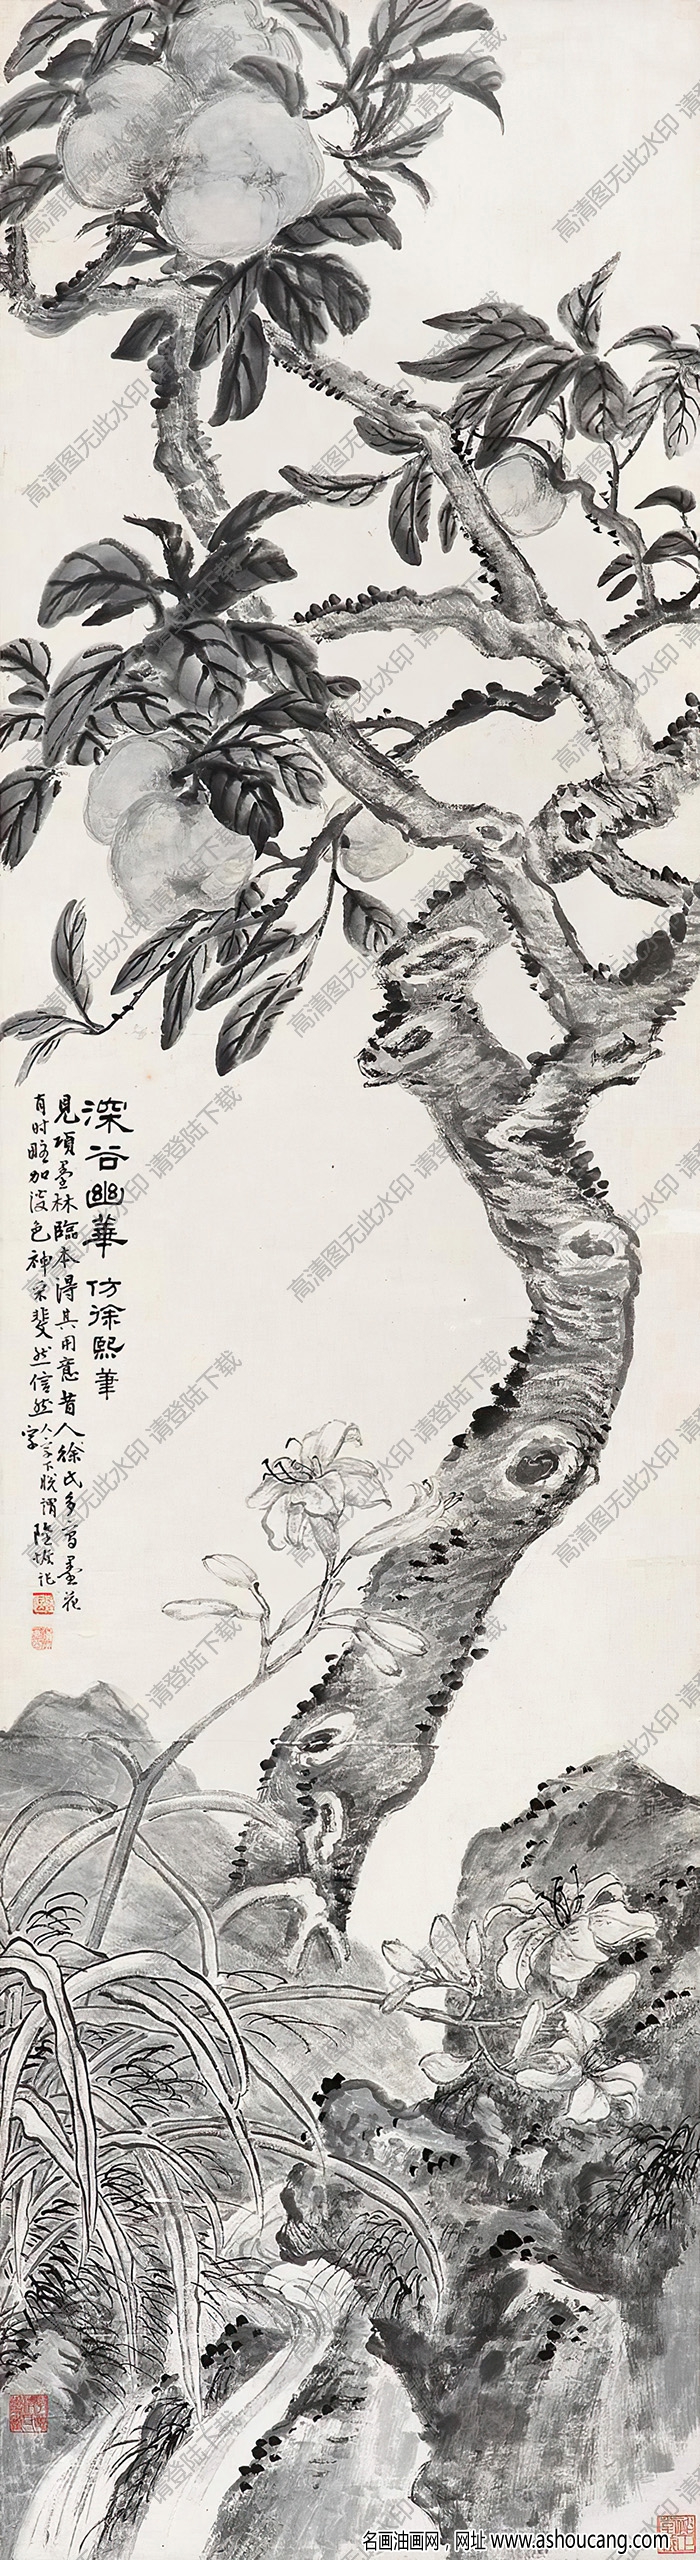 深谷幽華 仿徐熙筆
見項墨林臨本得其用意昔人徐氏多寫墨花
有时略加淡色神采斐然信然 陸恢記
人字下脱謂字
高清图无此水印 请登陆下载
名画油画网，网址 www.ashoucang.com